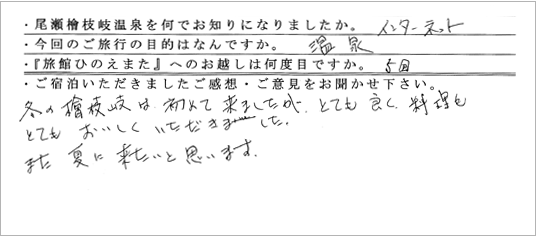 ・尾瀬檜枝岐温泉を何でお知りになりましたか。 インターネット
・今回のご旅行の目的はなんですか。 温泉
・『旅館ひのえまた』へのお越しは何度目ですか。 5回
・ご宿泊いただきましたご感想・ご意見をお聞かせ下さい。
冬の檜枝岐は初めて来ましたが、とても良く、料理も
とてもおいしくいただきました。
また夏に来たいと思います。